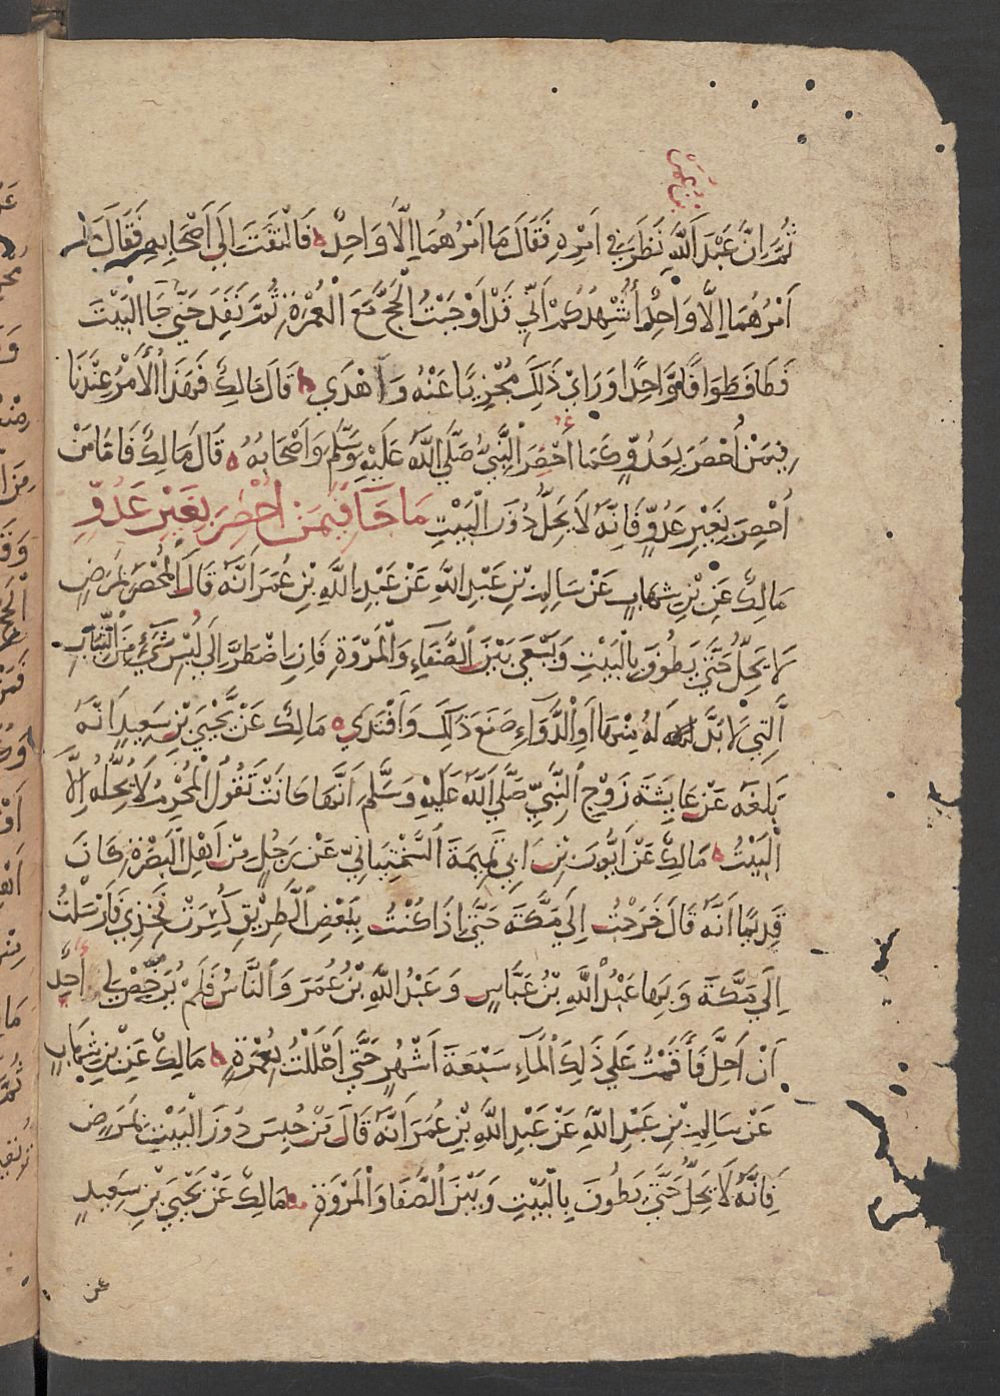 ثُمَّ اِنَّ عَبْدَ اَللَّهِ نَظَرَ فِي اَمْرِهِ فَقَالَ مَا اَمْرُهُمَا اِلَّا وَاحِدٌ ه فَالْتَفَتَ اِلَي اَصْحَابِهِ فَقَالَ مَا
اَمْرُهُمَا اِلَّا وَاحِدٌ أُشْهِدُكُمْ اَنِّي قَدْ اَوْجَبْتُ الْحَجَّ مَعَ الْعُمْرَةِ ثُمَّ نَفَذَ حَتَّي جَا الْبَيْتَ
فَطَافَ طَوَافًا وَّاحِدًا وَرَاَيْ ذَلِكَ مُجْزِيًا عَنْهُ وَأَهْدَي ه قَالَ مَالِكٌ فَهَذَا اُلْأَمْرُ عِنْدَنَا
فِيمَنْ اُحْصِرَ بِعَدُوٍّ كَمَا اُحْصِرَ النَّبِيُّ صَلَّي اَللَّهُ عَلَيْهِ وَسَلَّمَ وَاَصْحَابُهُ ه قَالَ مَالِكٌ فَامَّا مَنْ
اُحْصِرَ بِغَيْرِ عَدُوٍّ فَاِنَّهُ لَا يَحِلُّ دُوَن الْبَيْتِ مَا جَآ فِيمَنْ اُحْصِرَ بِغَيْرِ عَدُوٍّ
مَالِكٌ عَنِ بْنِ شِهَابٍ عَنْ سَالِمِ بْنِ عَبْدِ اللَّهِ عَنْ عَبْدِ اللَّهِ بْنِ عُمَرَ اَنَّهُ قَالَ الْمُحْصَرُ بِمَرَضٍ
لَا يَحِلُّ حَتَّي يَطُوفَ بِالْبَيْتِ وَيَسْعَي بَيْنَ اَلصَّفَاءِ وَالْمَرْوَةِ فَاِنِ اِضْطَرَّ اِلَي لُبْسِ شَيْءٍ مِنَ الثِّيَابِ
اَلَّتِي لَا بُدَّ لَهُ مِنْهَا اَوِ الدَّوَاءِ صَنَعَ ذَلِكَ وَاَفْتَدَي ه مَالِكٌ عَنْ يَّحْيَي بْنِ سَعِيدٍ اَنَّهُ
بَلَغَهُ عَنْ عَايِشَةَ زَوْجِ اَلنَّبِيِّ صَلَّي اَللَّهُ عَلَيْهِ وَسَلَّمَ اَنَّهَا كَانَتْ تَقُولُ الْمُحْرِمُ لَا يُحِلُّهُ اِلَّا
الْبَيْتُ ه مَالِكٌ عَنْ اَيُّوبَ بْنِ اَبِي تَمِيمَةَ اَلسَّخْتِيَانِيِّ عَنْ رَجُلٍ مِّنْ اَهْلِ الْبَصْرَةِ كَانَ
قَدِيمًا اَنَّهُ قَالَ خَرَجْتُ اِلَي مَكَّةَ حَتَّي اِذَا كُنْتُ بِبَعْضِ الْطَرِيقِ كُسِرَتْ فَخِذِي فَاَرْسَلْتُ
اِلَي مَكَّةَ وَبِهَا عَبْدُ اللَّهِ بْنُ عَبَّاسٍ وَعَبْدُ اللَّهِ بْنُ عُمَرَ وَالنَّاسُ فَلَمْ يُرَخِّصْ لِي اَحَدٌ
اَنْ اَحِلَّ فَأَقَمْتُ عَلَي ذَلِكَ الْمَاءِ سَبْعَةَ اَشْهُرٍ حَتَّي اَحْلَلْتُ بِعُمْرَةٍ ه مَالِكٌ عَنِ بْنِ شِهَابٍ
عَنْ سَالِمِ بْنِ عَبْدِ اللَّهِ عَنْ عَبْدِ اللَّهِ بْنِ عُمَرَ اَنَّهُ قَالَ مَنْ حُبِسَ دُوَن الْبَيْتِ بِمَرَضٍ
فَاِنَّهُ لَا يَحِلُّ حَتَّي يَطُوفَ بِالْبَيْتِ وَبَيْنَ الصَّفَا وَالْمَرْوَةِ ه مَالِكٌ عَنْ يَحْيَي بْنِ سَعِيدٍ
عن